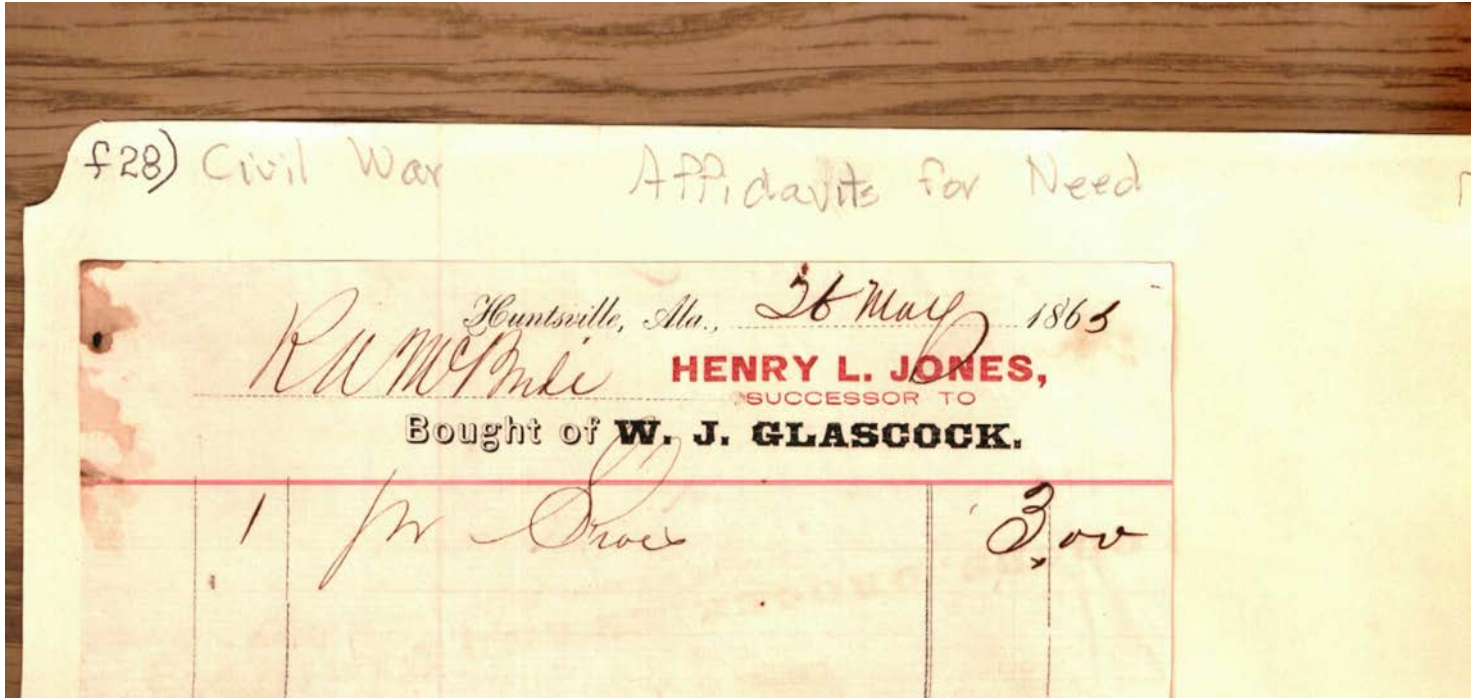 f28) Civil War Affidavits for Need
Huntsville, Ala., 26 May 1865
R W McBride HENRY L. JONES,
SUCCESSOR TO
Bought of W. J. GLASCOCK.
1 pr Shoes 3 00